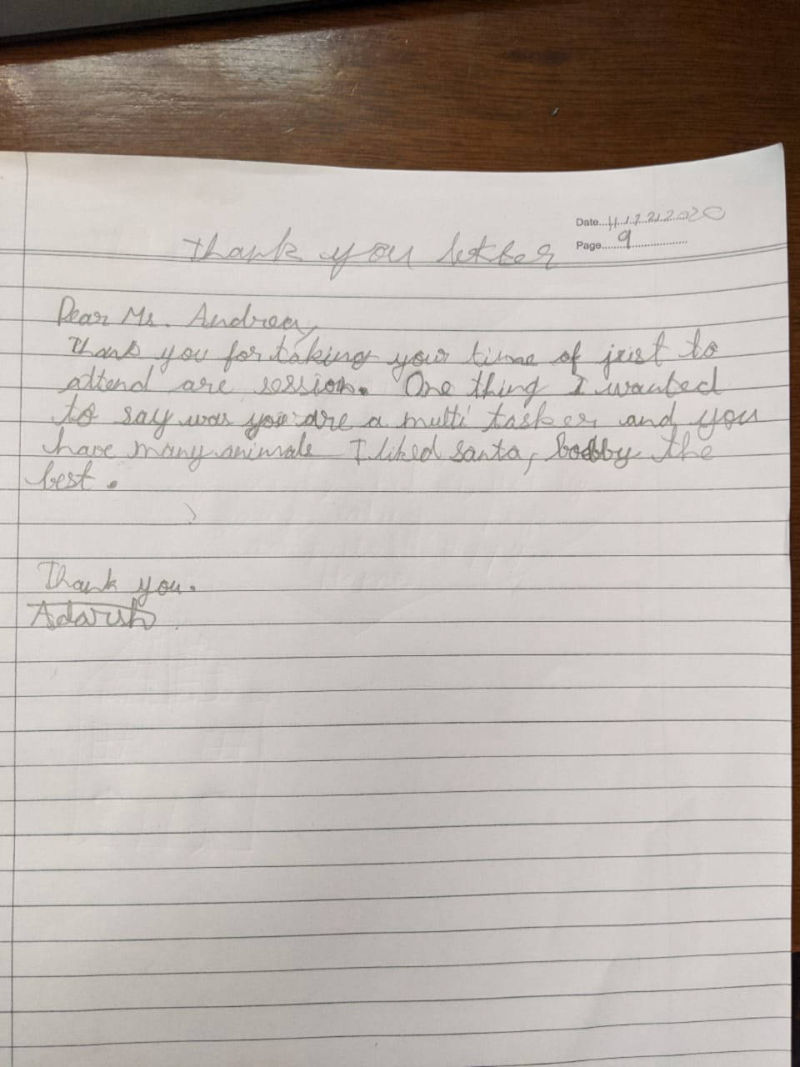 Date...4.12.2020
Page...9
thank you letter
Dear Ms. Andrea,
Thank you for taking your time of just to
attend are session. One thing I wanted
to say was you are a multi tasker and you
have many animals I liked santa, bobby the
best.
Thank you.
Adarsh